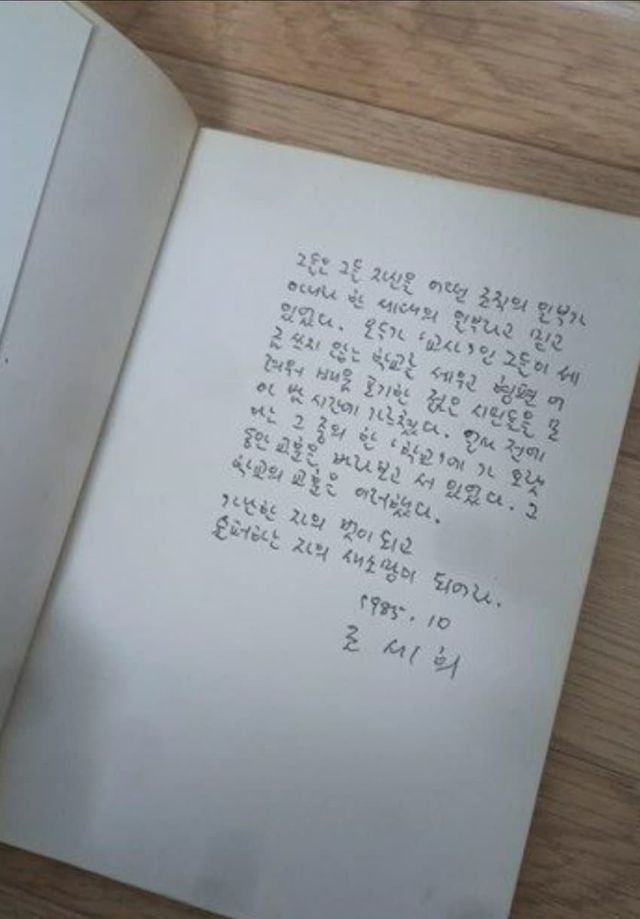 그들은 그들 자신을 어떤 조직의 일부가
아니라 한 세대의 일부라고 믿고
있었다. 모두가 '교사'인 그들이 세
를 쓰지 않는 학교를 세우고 형편 어
려워 배움 포기한 젊은 시민들을 모
아 밤 시간에 가르쳤다. 얼마 전에
나는 그 중의 한 '학교'에 가 오랫
동안 교훈을 바라보고 서 있었다. 그
학교의 교훈은 이러했다.
가난한 자의 벗이 되고
슬퍼하는 자의 새소망이 되어라.
1985. 10
조세희